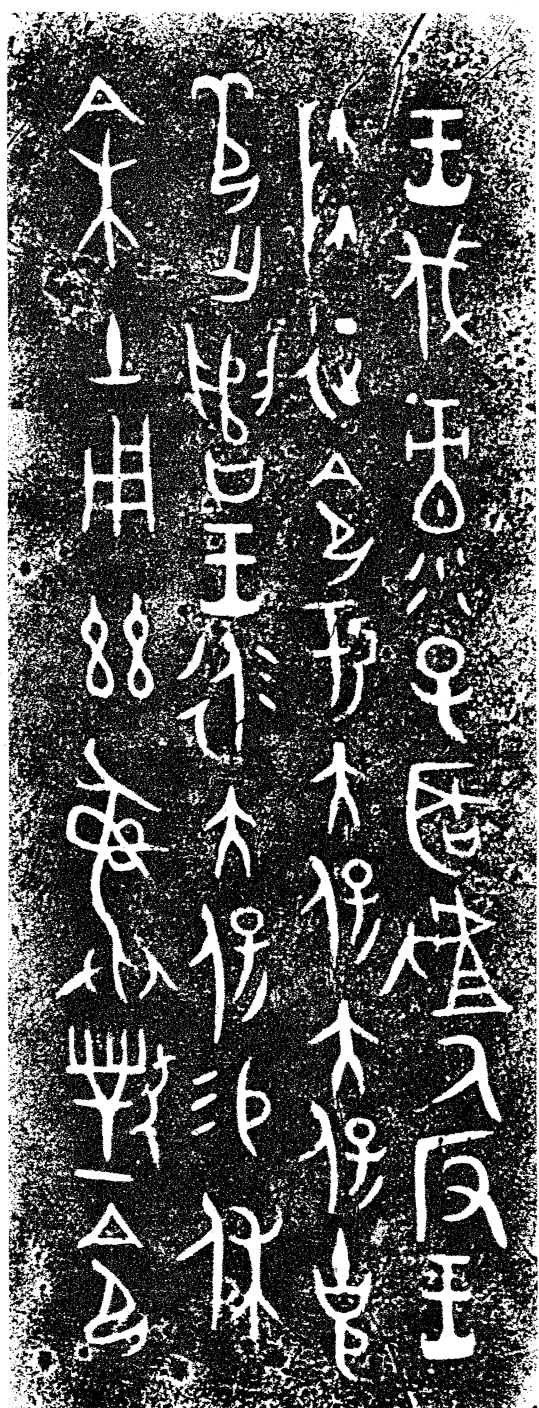 王伐彔子𦔻𠭯氒反王
降征令于大保大保克
芍亡遣王永大保易休
余土用𢆶彝對令